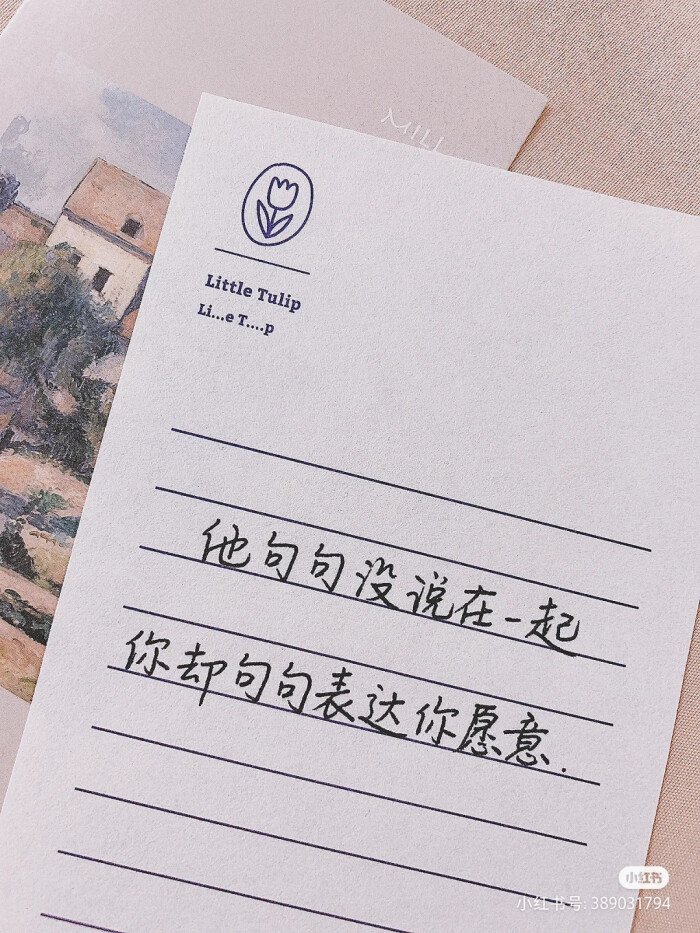 MILI
Little Tulip
Li...e T....p
他句句没说在一起
你却句句表达你愿意.
小红书
小红书号: 389031794